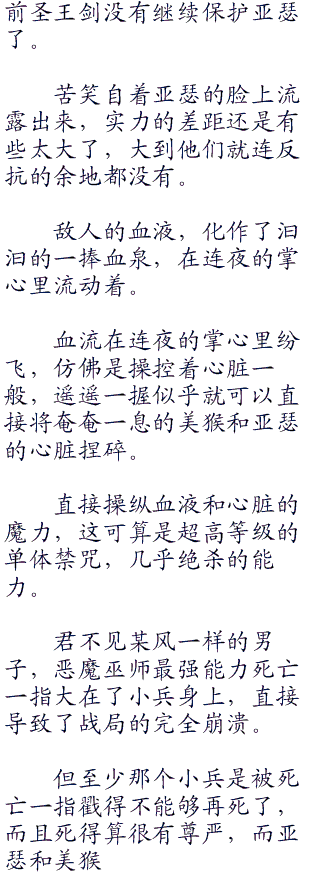 前圣王剑没有继续保护亚瑟
了。
苦笑自着亚瑟的脸上流
露出来，实力的差距还是有
些太大了，大到他们就连反
抗的余地都没有。
敌人的血液，化作了汩
汩的一捧血泉，在连夜的掌
心里流动着。
血流在连夜的掌心里纷
飞，仿佛是操控着心脏一
般，遥遥一握似乎就可以直
接将奄奄一息的美猴和亚瑟
的心脏捏碎。
直接操纵血液和心脏的
魔力，这可算是超高等级的
单体禁咒，几乎绝杀的能
力。
君不见某风一样的男
子，恶魔巫师最强能力死亡
一指大在了小兵身上，直接
导致了战局的完全崩溃。
但至少那个小兵是被死
亡一指戳得不能够再死了，
而且死得算很有尊严，而亚
瑟和美猴